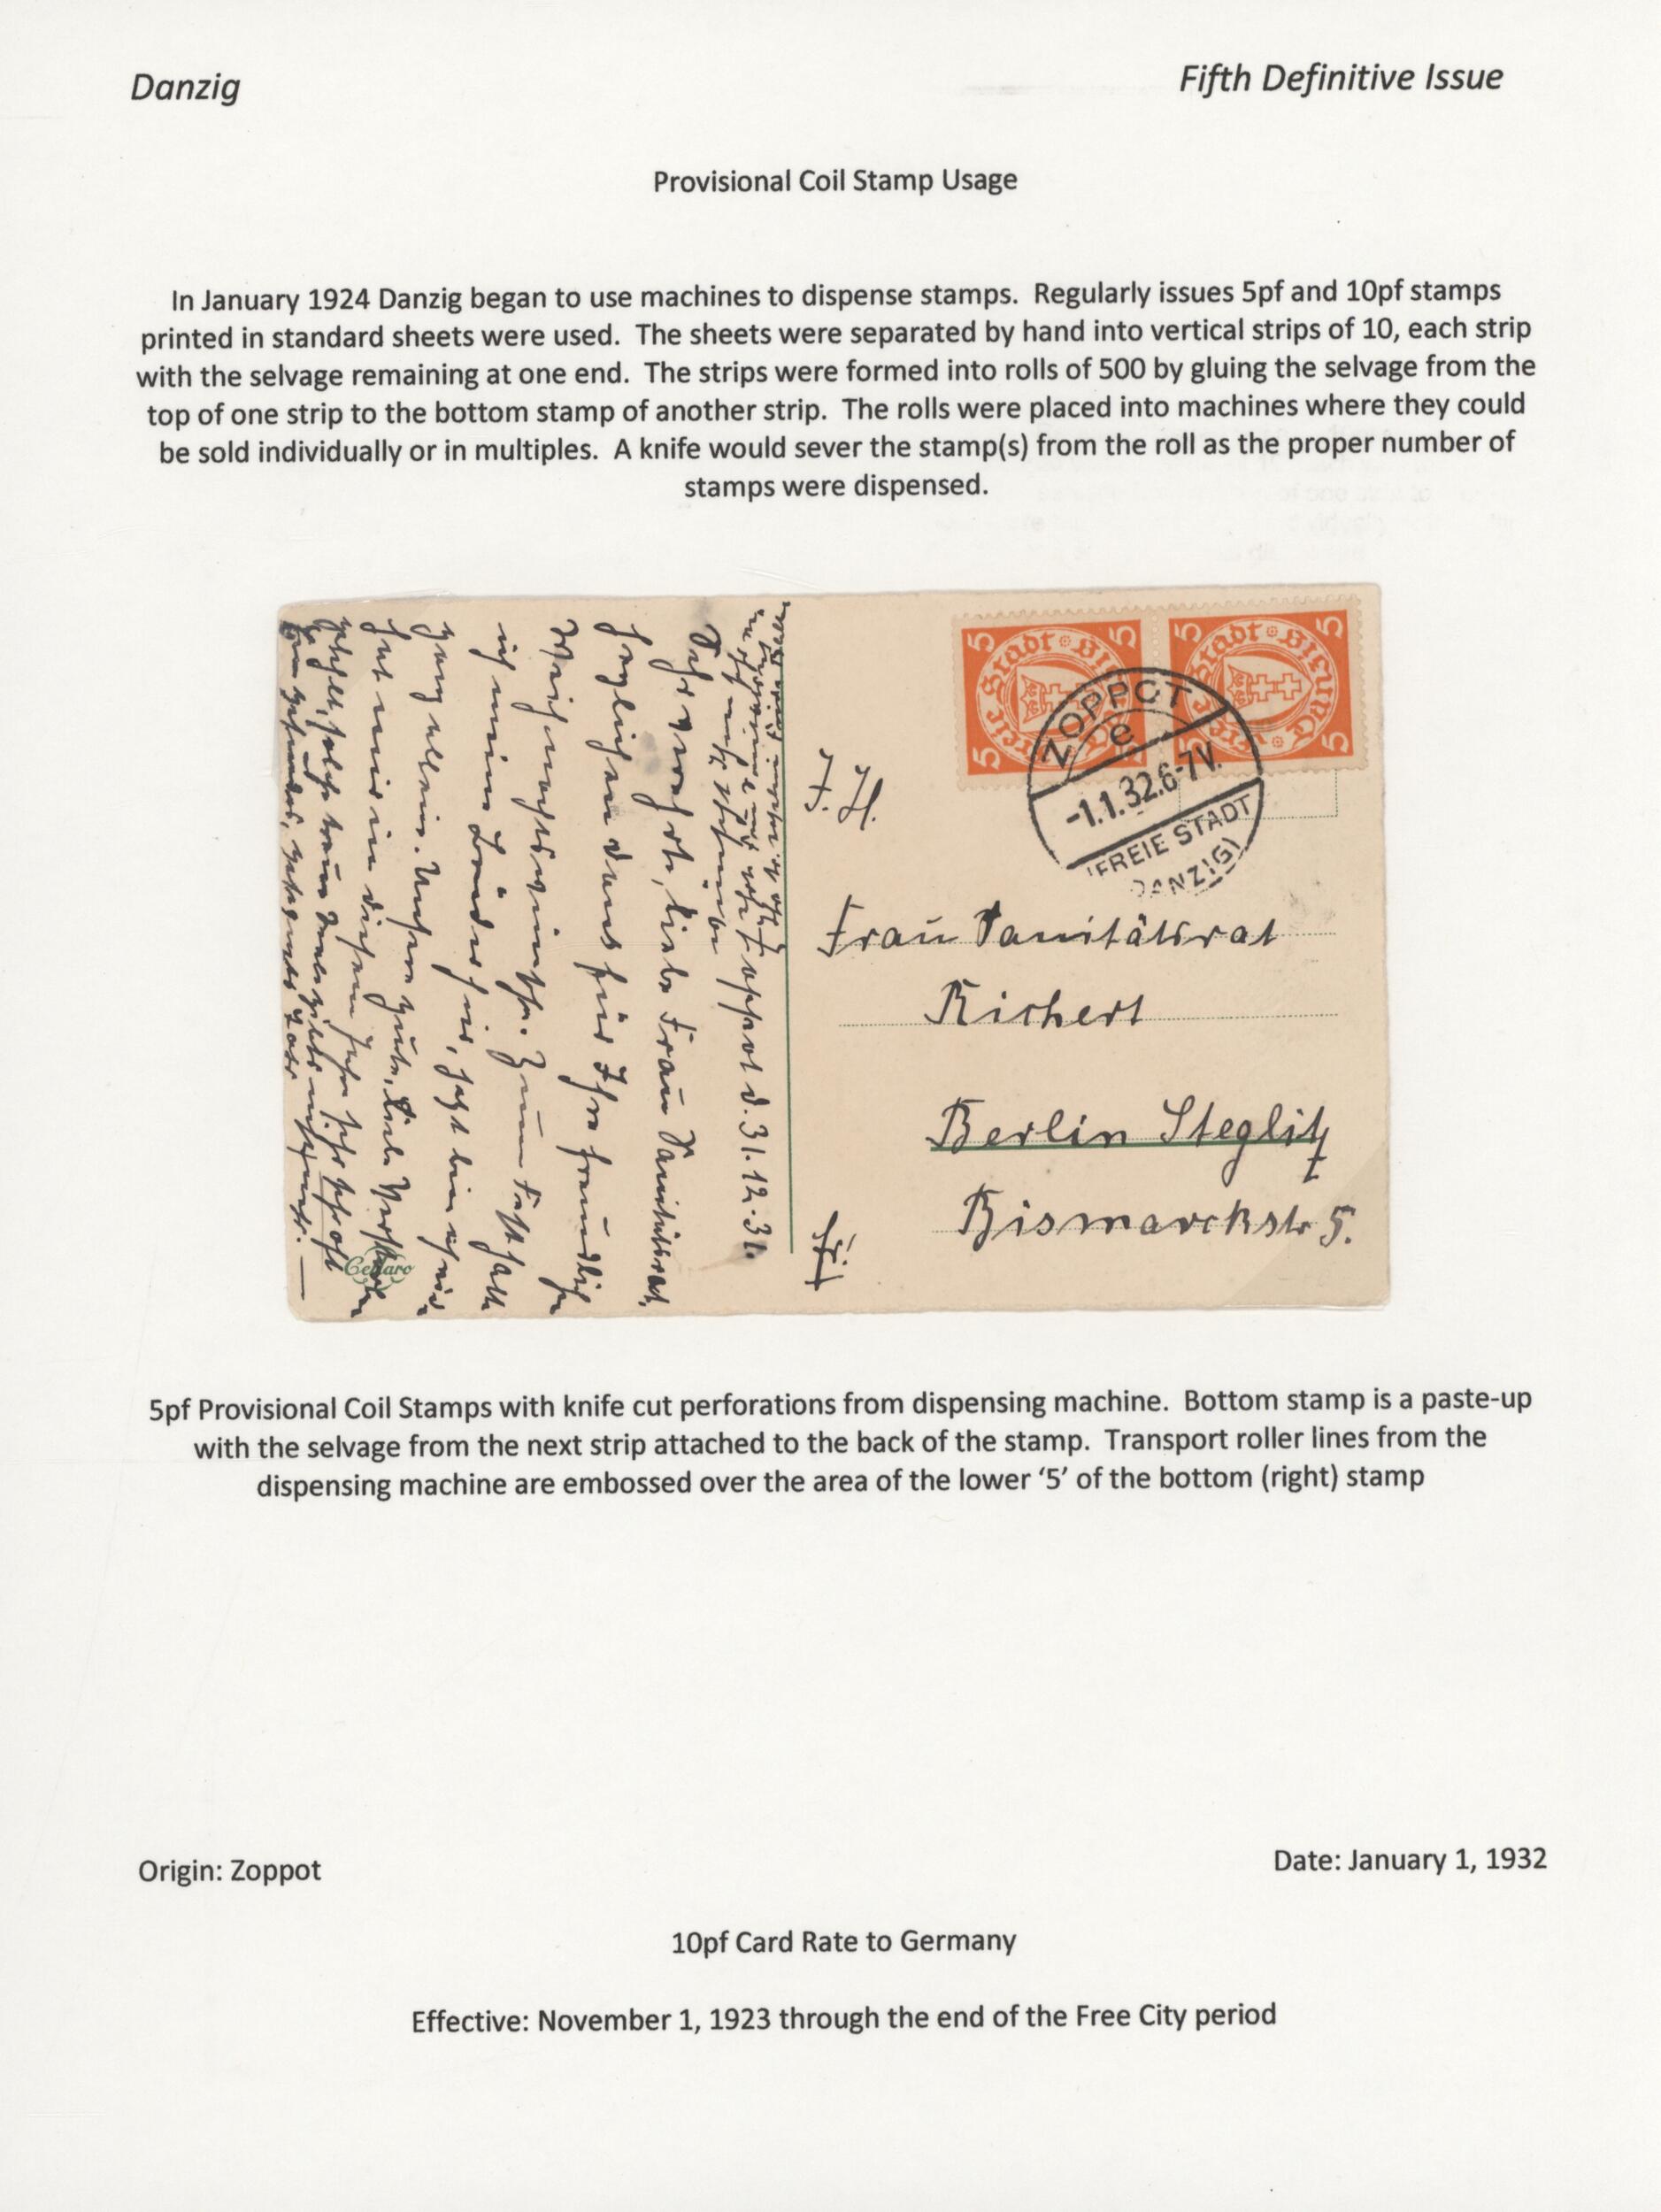 Danzig
Fifth Definitive Issue
Provisional Coil Stamp Usage
In January 1924 Danzig began to use machines to dispense stamps. Regularly issues 5pf and 10pf stamps
printed in standard sheets were used. The sheets were separated by hand into vertical strips of 10, each strip
with the selvage remaining at one end. The strips were formed into rolls of 500 by gluing the selvage from the
top of one strip to the bottom stamp of another strip. The rolls were placed into machines where they could
be sold individually or in multiples. A knife would sever the stamp(s) from the roll as the proper number of
stamps were dispensed.
Zoppot d. 31.12.31.
Sehr verehrte, liebe Frau Sanitätsrat,
herzlichen Dank für Ihre freundlichen
Weihnachtswünsche. Zum Fest hatte
ich meine Brüder hier, jetzt bin ich wieder
ganz allein.
Cellaro
5 5 5 5
Freie Stadt Danzig
5 5 5 5
Freie Stadt Danzig
ZOPPOT
e
-1.1.32.6-7V.
(FREIE STADT
DANZIG)
Frau Sanitätsrat
Richert
Berlin Steglitz
Bismarckstr 5.
5pf Provisional Coil Stamps with knife cut perforations from dispensing machine. Bottom stamp is a paste-up
with the selvage from the next strip attached to the back of the stamp. Transport roller lines from the
dispensing machine are embossed over the area of the lower ‘5’ of the bottom (right) stamp
Origin: Zoppot
Date: January 1, 1932
10pf Card Rate to Germany
Effective: November 1, 1923 through the end of the Free City period